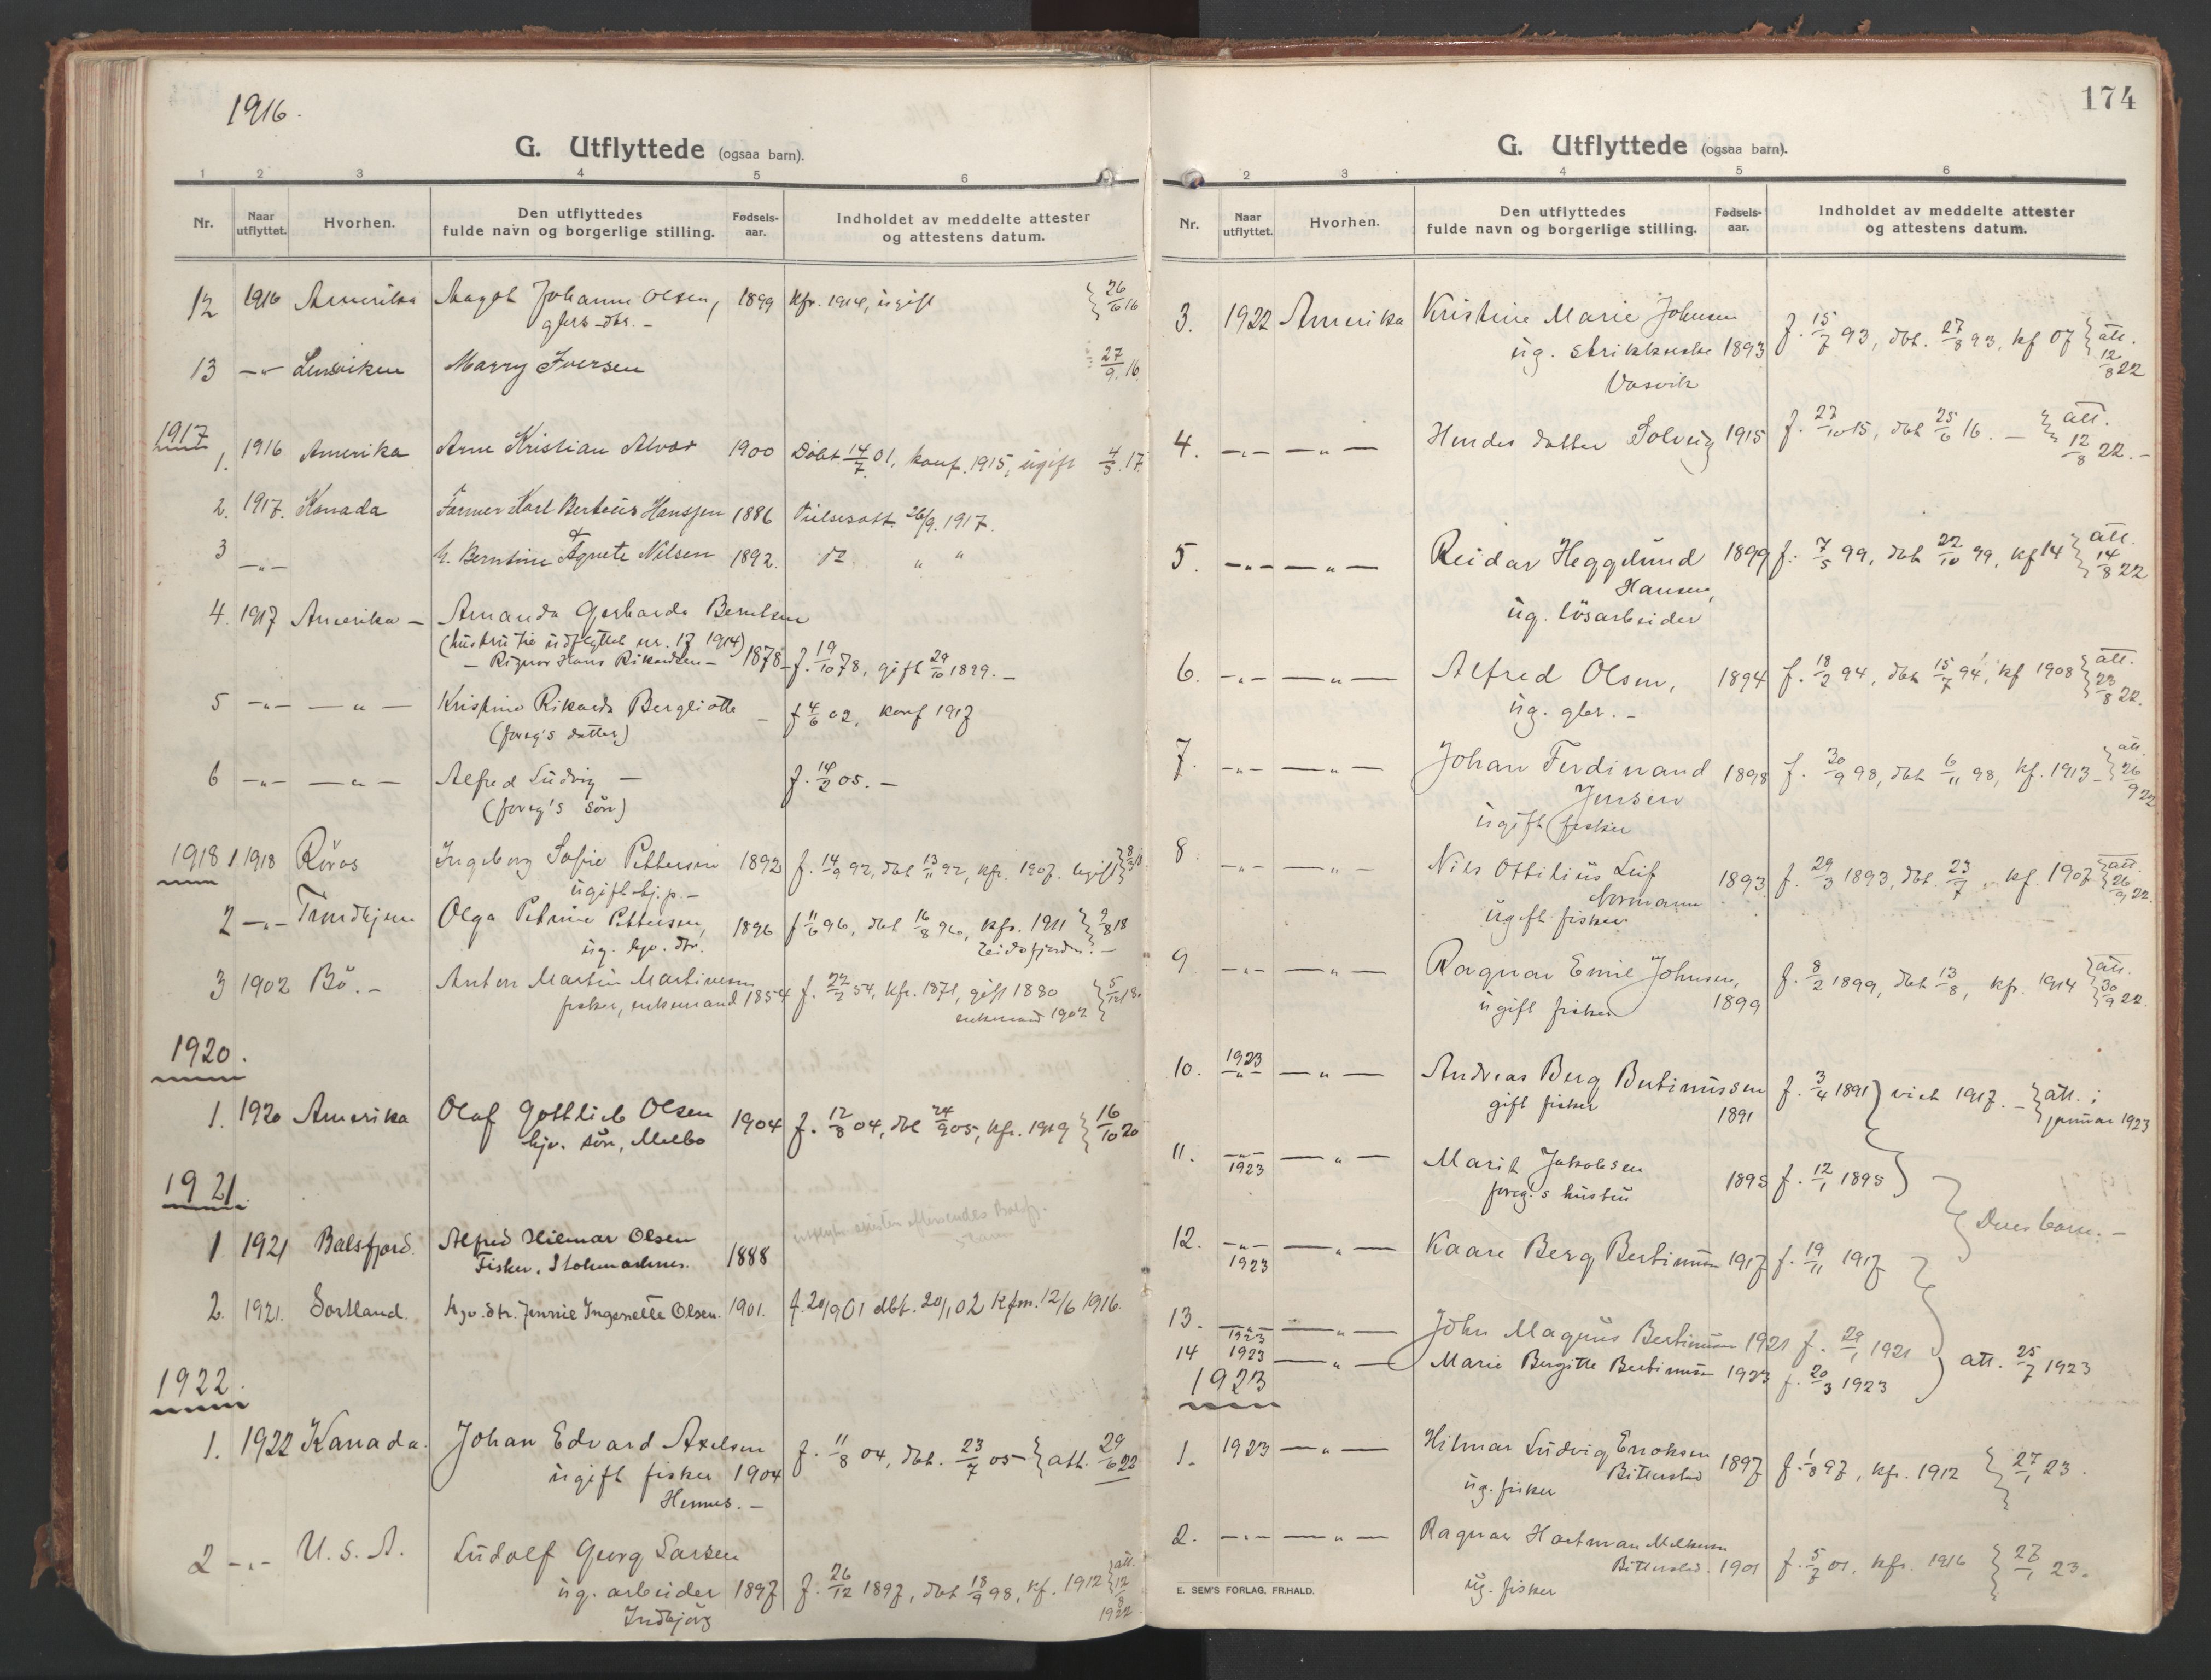 1916.
G. Utflyttede (ogsaa barn).
1 2 3 4 5 6
Nr. Naar utflyttet. Hvorhen. Den utflyttedes fulde navn og borgerlige stilling. Fødsels-aar. Indholdet av meddelte attester og attestens datum.
12 1916 Amerika Johanne Olsen, 1899 kfr. 1914, ugift 26/6 16
13 -"- Marry Iversen 27/9 16
1917
1. 1916 Amerika Arne Kristian 1900 Døbt 14/7 01, konf. 1915, ugift 4/5 17.
2. 1917. Kanada Farmer Karl Berteus Hanssen 1886 26/9. 1917.
&
3 -"- h. Berntine Agnete Nilsen 1892. do. " "
4. 1917 Amerika - Amanda Gerharda Berntsen
(hustru til udflyttet nr. 17 1914)
1878 f. 19/10 78, gift 29/10 1899. -
5 -"- -"- Kristine Rikarda Bergliotte - f 4/6 02, konf 1917
(foreg's datter)
6 -"- -"- Alfred Ludvig - f. 14/2 05. -
(foreg's søn)
1918 1 1918 Røros Ingeborg Sofie Pettersen 1892 f. 14/9 92, dbt 13/11 92, kfr. 1907. ugift
ugift tj.p. -
2 -"- Trondhjem Olga Petrine Pettersen, 1896 f 11/6 96, dbt 16/8 96, kfr. 1911 9/8 18
ug. gjo. dtr. Eidsfjorden. -
3 1902 Bø. - Anton Martin Martinsen
fisker, enkemand 1854 f. 22/2 54, kfr. 1871, gift 1880 5/12 18.
enkemand 1902
1920.
1. 1920 Amerika Olaf Gotthlieb Olsen 1904 f. 12/8 04, dbt 24/9 05, kfr. 1919 16/10 20
hjv. søn, Melbo
1921.
1 1921 Balsfjord. Alfred Hilmar Olsen 1888
Fisker, Stokmarknes.
2. 1921. Sortland. hjv. dtr. Jennie Ingenette Olsen. 1901. f. 20/9 01 dbt. 20/1 02 kfm. 12/6 1916.
1922.
1. 1922 Kanada. Johan Edvard Axelsen f. 11/8 04, dbt. 23/7 05 att. 29/6 22
ugift fisker 1904
Hennes. -
2 -"- U. S. A. Ludolf Georg Larsen att.
ug. arbeider 1897 f. 26/12 1897, dbt 18/9 98, kf. 1912 12/8
Indbjørg 1922.
174
G. Utflyttede (ogsaa barn).
2 3 4 5 6
Nr. Naar utflyttet. Hvorhen. Den utflyttedes fulde navn og borgerlige stilling. Fødsels-aar. Indholdet av meddelte attester og attestens datum.
3. 1922 Amerika Kristine Marie Johnsen
ug. strikkerske 1893 f. 15/7 93, dbt. 27/8 93, kf 07 att. 12/8 22
Vasvik
4. -"- -"- Hendes datter Solveig 1915 f. 27/10 15, dbt 25/6 16. - att. 12/8 22. -
5. -"- -"- Reidar Heggelund 1899 f. 7/5 99, dbt 22/10 99, kf 14 att. 14/8 22
Hansen,
ug. løsarbeider
6. -"- -"- Alfred Olsen, 1894 f. 18/2 94, dbt 15/7 94, kf 1908 att. 23/8 22.
ug. gbr. -
7. -"- -"- Johan Ferdinand 1898 f. 30/9 98, dbt 6/11 98, kf. 1913 - att. 26/9 22
Jensen
ugift fisker
8. -"- -"- Nils Ottilius Leif 1893 f. 29/3 1893, dbt. 23/7 ", kf. 1907 att. 26/9 22.
Normann
ugift fisker
9 -"- -"- Ragnar Emil Johnsen, f. 8/2 1899, dbt 13/8, kfr. 1914 att. 30/9 22.
ugift fisker 1899
10. 1923 -"- Andreas Berg Bertinussen f. 3/4 1891 viet 1917. - att. i januar 1923
gift fisker 1891
11. -"- 1923 -"- Marit Jakobsen 1895 f. 12/1 1895
foreg.'s hustru
Deres barn. -
12. -"- 1923 -"- Kaare Berg Bertinussen 1917 f. 19/11 1917
13. -"- 1923 -"- John Magnus Bertinussen 1921 f. 29/1 1921
14 1923 -"- Marie Bergitte Bertinussen 1923 f. 20/3 1923 att. 25/7 1923
1923
1. 1923 -"- Hilmar Ludvig Enoksen 1897 f. 1/8 97, kfr. 1912 27/1 23.
ug. fisker Bitterstad
2. -"- -"- Ragnar Hartman
ug. fisker Bitterstad. 1901 f. 5/7 01, kfr. 1916 27/1 23.
E. SEM'S FORLAG, FR.HALD.